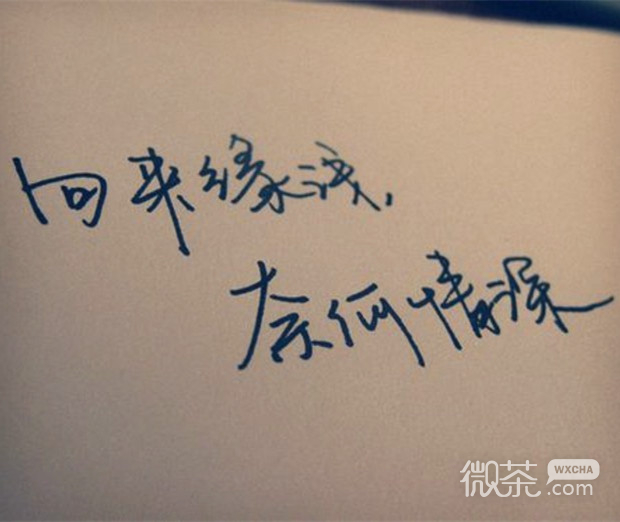 向来缘浅,
奈何情深
微茶
WXCHA
.com